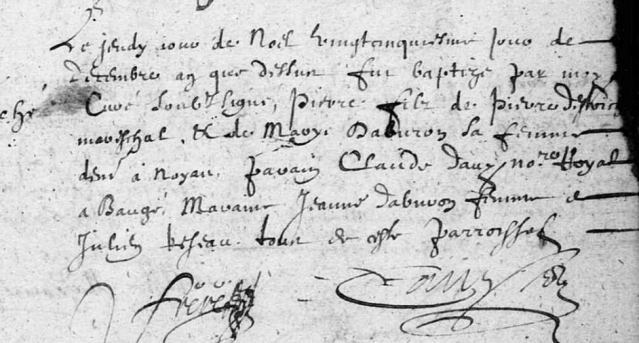 Le jeudy jour de Noel vingtcinquiesme jour de
decembre an que dessus fut baptizé par moy
Curé soubssigné, Pierre filz de Pierre
mareschal & de Marye Daburon sa femme
dem^t à Noyan, parain Claude Davy no^re Royal
a Baugé, Maraine Jeanne Daburon femme de
Julien tous de ceste parroisse
Davy